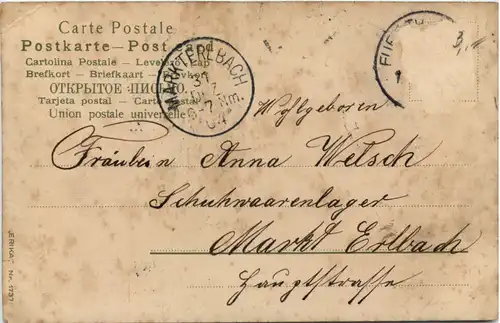 Carte Postale
Postkarte — Post card
Cartolina Postale — Levelező-Lap
Brefkort — Briefkaart — Brevkort
ОТКРЫТОЕ ПИСЬМО.
Tarjeta postal — Carte postal
Union postale universelle
MARKT ERLBACH
31
DEZ
7 Nm.
04
FUERTH
1
3,
Wohlgeboren
Fräulein Anna Welsch
Schuhwaarenlager
Markt Erlbach
Hauptstrasse
ERIKA Nr. 1737